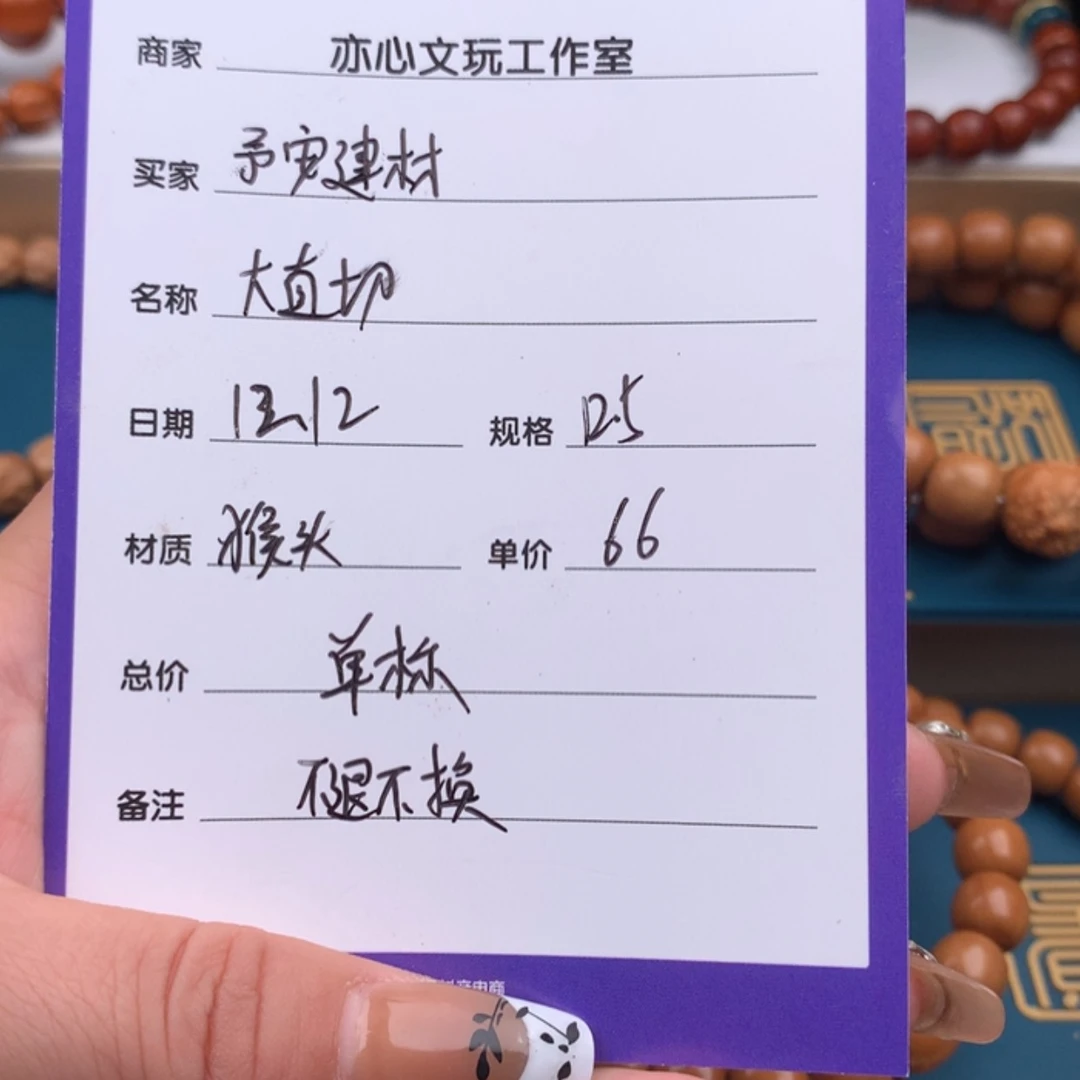 商家 亦心文玩工作室
买家 予安建材
名称 大直切
日期 12.12 规格 12.5
材质 猴头 单价 66
总价 单标
备注 不退不换